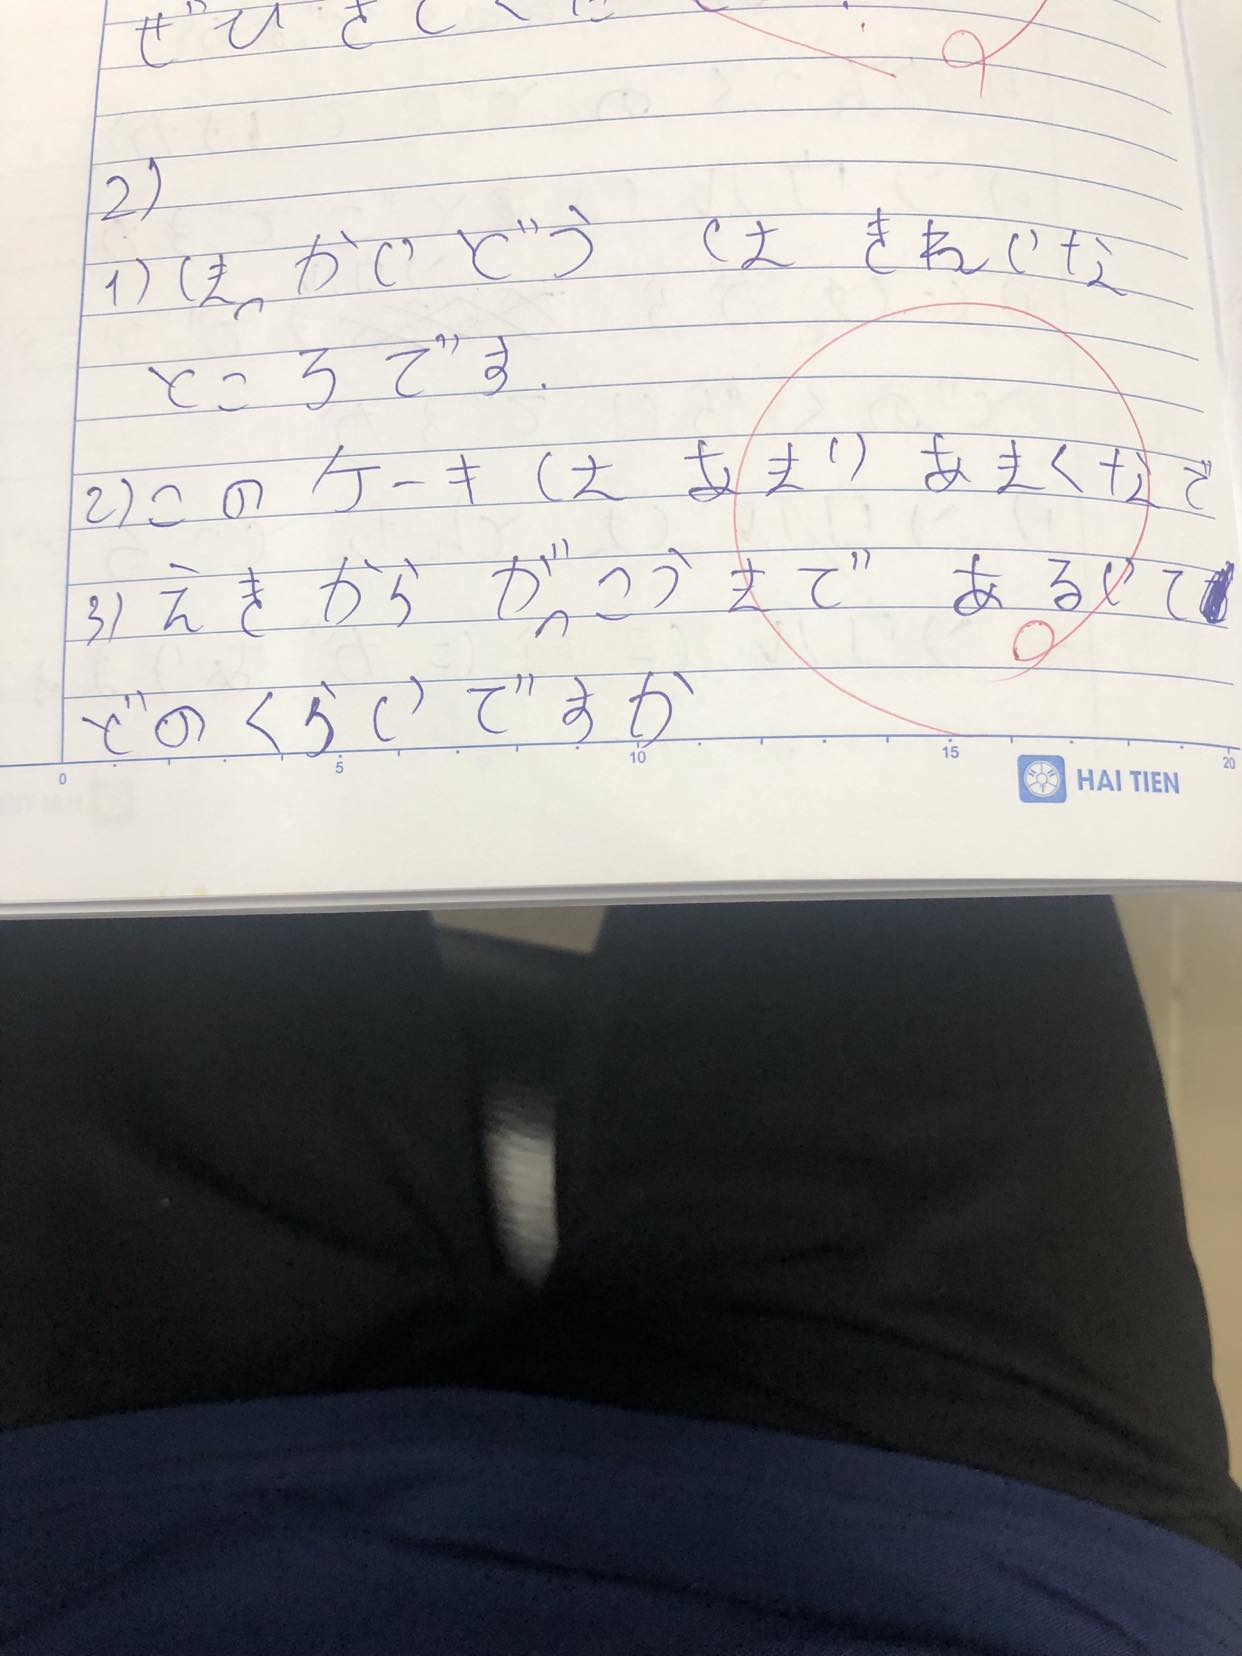 ぜひ きてくだ
2)
1) ほっかいどう は きれいな
ところです.
2) この ケーキ は あまり あまくなで
3) えき から がっこう まで あるいて
どのくらい ですか
0 5 10 15 20
HAI TIEN